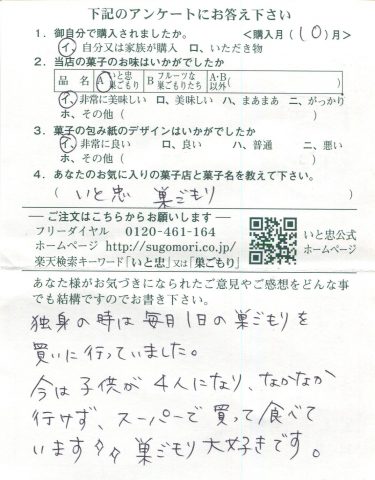 下記のアンケートにお答え下さい
1. 御自分で購入されましたか。 <購入月(10)月>
イ、自分又は家族が購入 ロ、いただき物
2. 当店の菓子のお味はいかがでしたか
品 名 A いと忠巣ごもり B フルーツな巣ごもりたち A・B以外( )
イ、非常に美味しい ロ、美味しい ハ、まあまあ ニ、がっかり
ホ、その他( )
3. 菓子の包み紙のデザインはいかがでしたか
イ、非常に良い ロ、良い ハ、普通 ニ、悪い
ホ、その他( )
4. あなたのお気に入りの菓子店と菓子名を教えて下さい。
( いと忠 巣ごもり )
―ご注文はこちらからお願いします―
フリーダイヤル 0120-461-164
ホームページ http://sugomori.co.jp/
楽天検索キーワード「いと忠」又は「巣ごもり」
いと忠公式
ホームページ
あなた様がお気づきになられたご意見やご感想をどんな事
でも結構ですのでお書き下さい。
独身の時は毎月1日の巣ごもりを
買いに行っていました。
今は子供が4人になり、なかなか
行けず、スーパーで買って食べて
います 巣ごもり大好きです。